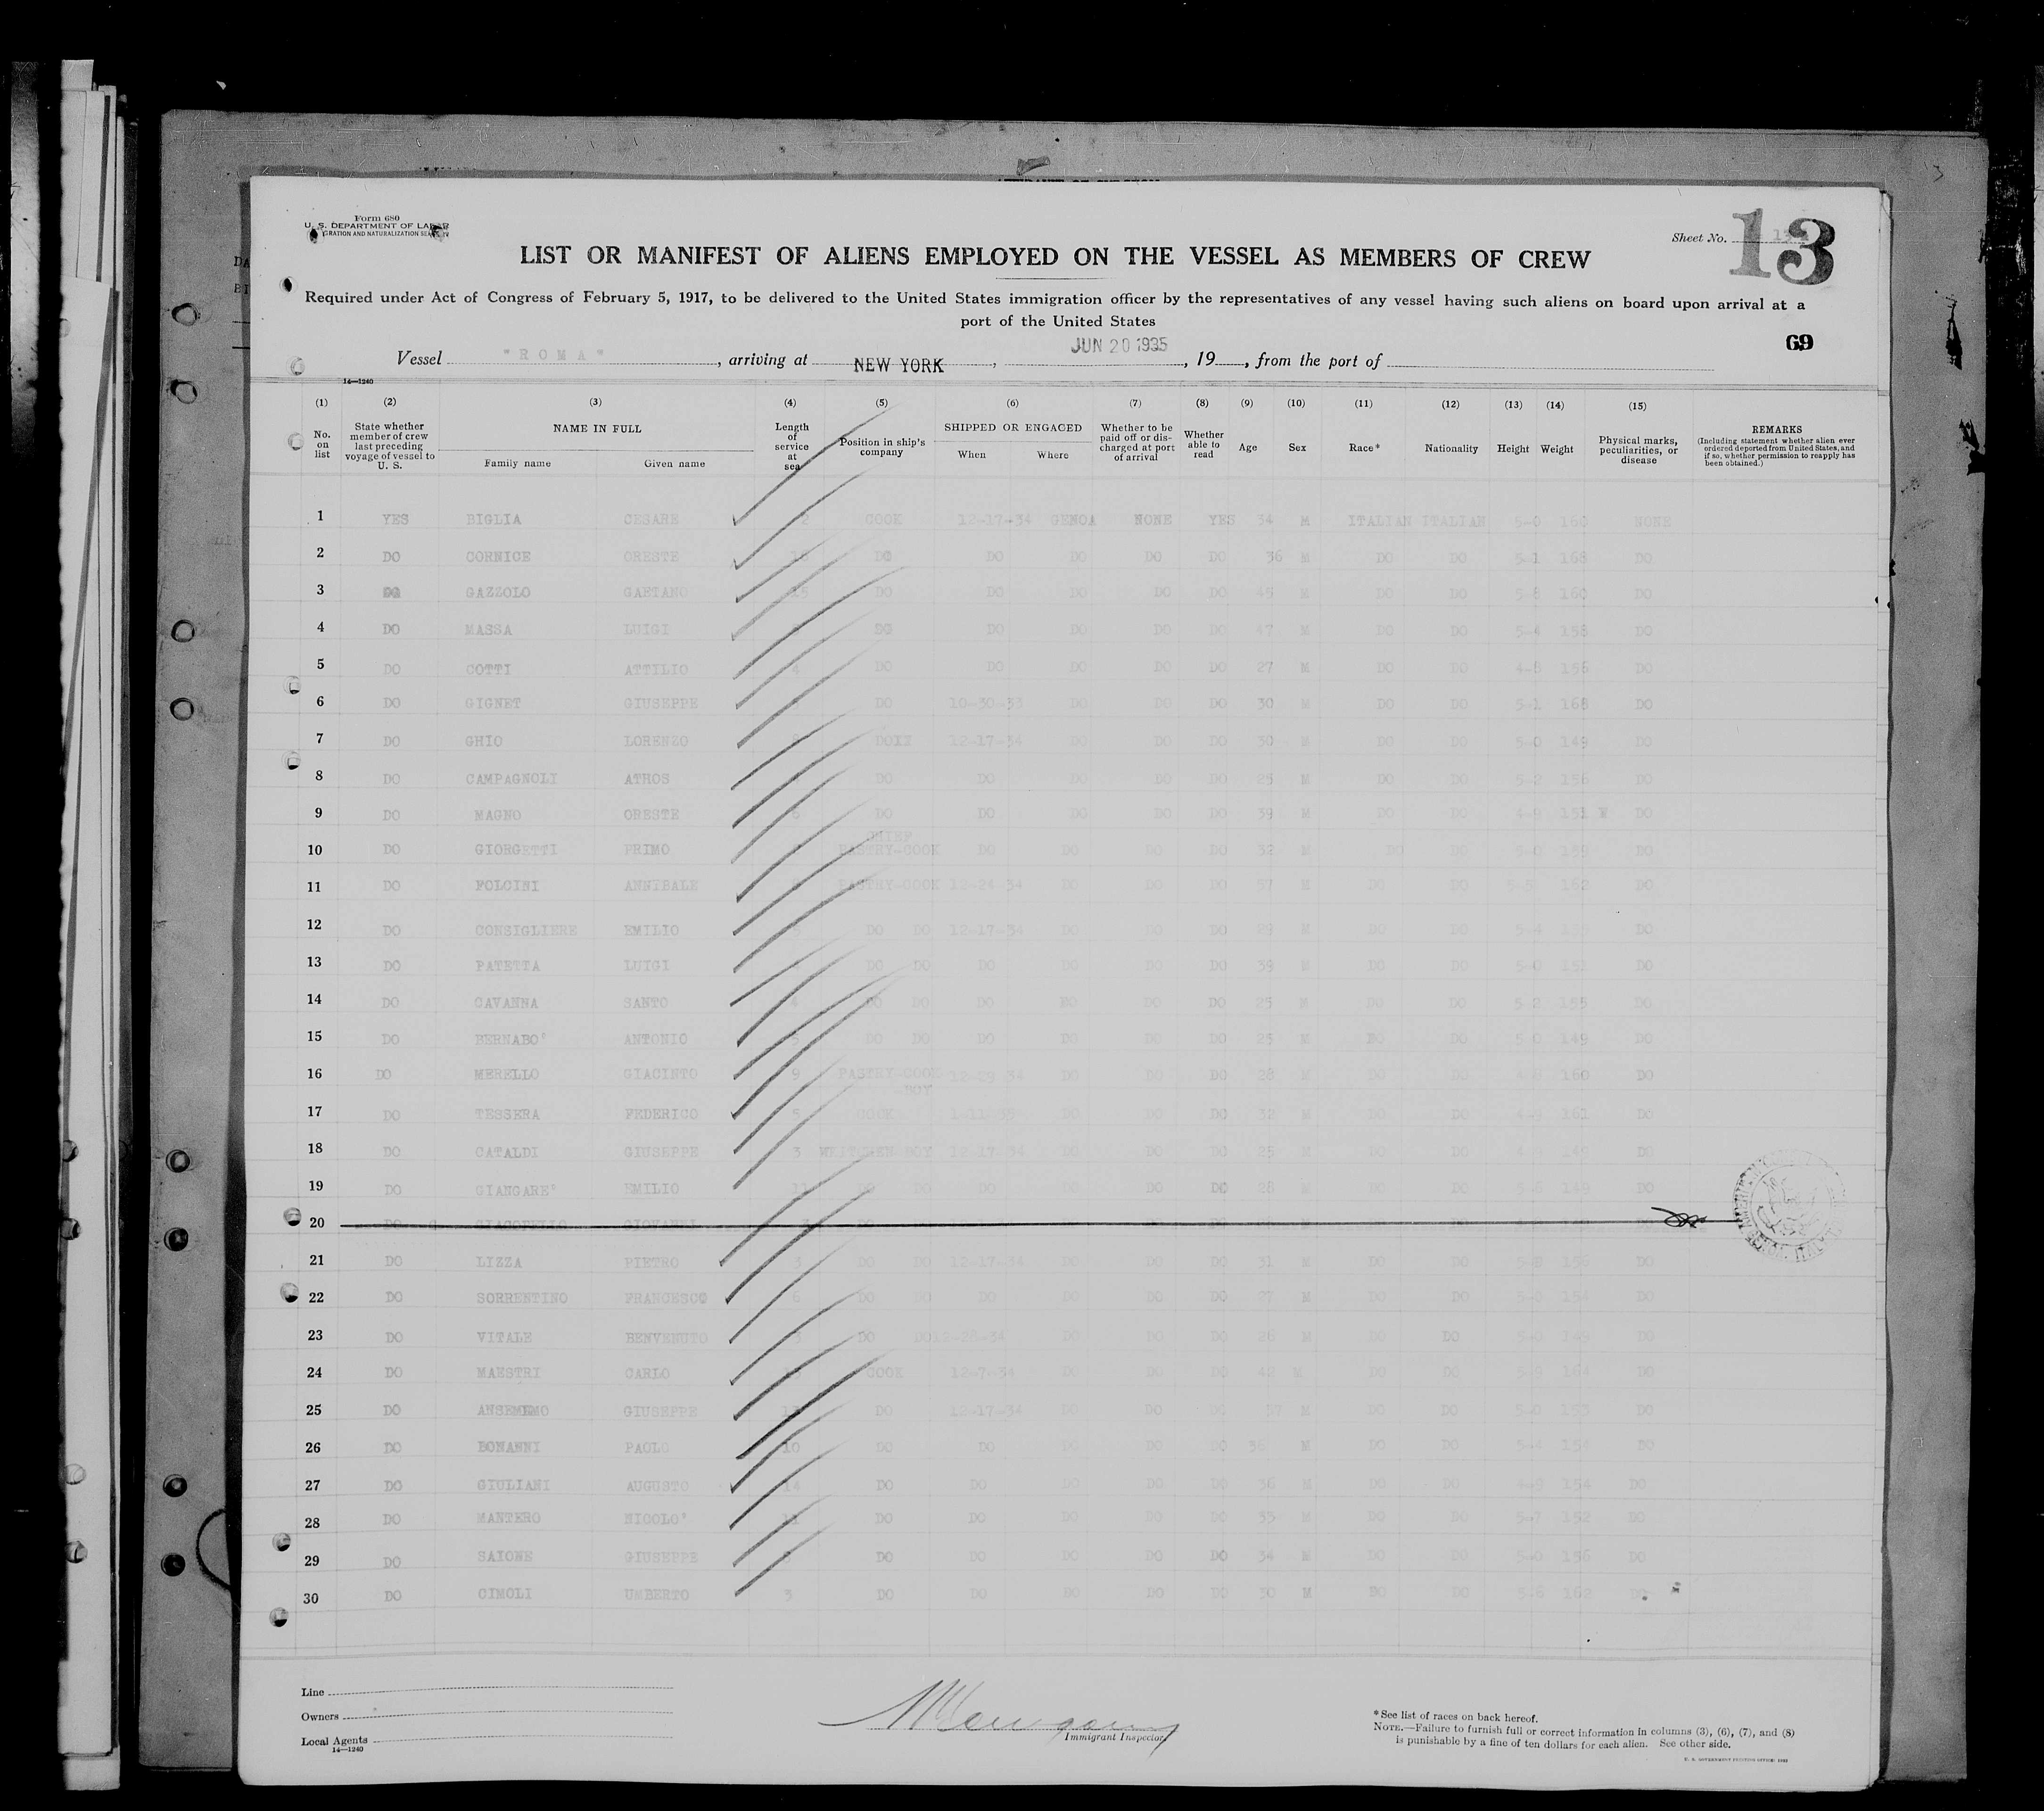 Form 680
U. S. DEPARTMENT OF LABOR
GRATION AND NATURALIZATION
Sheet No. 13
LIST OR MANIFEST OF ALIENS EMPLOYED ON THE VESSEL AS MEMBERS OF CREW
Required under Act of Congress of February 5, 1917, to be delivered to the United States immigration officer by the representatives of any vessel having such aliens on board upon arrival at a
port of the United States
69
Vessel "ROMA", arriving at NEW YORK, JUN 20 1935, 19, from the port of
14—1240
(1) (2) (3) (4) (5) (6) (7) (8) (9) (10) (11) (12) (13) (14) (15)
No. on list State whether member of crew last preceding voyage of vessel to U. S. NAME IN FULL Family name Given name Length of service at sea Position in ship's company SHIPPED OR ENGAGED When Where Whether to be paid off or discharged at port of arrival Whether able to read Age Sex Race* Nationality Height Weight Physical marks, peculiarities, or disease REMARKS (Including statement whether alien ever ordered deported from United States, and if so, whether permission to reapply has been obtained.)
1 YES BIGLIA CESARE 2 COOK 12-17-34 GENOA NONE YES 34 M ITALIAN ITALIAN 5-0 160 NONE
2 DO CORNICE ORESTE DO DO DO DO DO 36 M DO DO 5-1 168 DO
3 DO GAZZOLO GAETANO 15 DO DO DO DO DO 45 M DO DO 5-8 160 DO
4 DO MASSA LUIGI DO DO DO DO DO 47 M DO DO 5-4 158 DO
5 DO COTTI ATTILIO 4 DO DO DO DO DO 27 M DO DO 4-8 156 DO
6 DO GIGNET GIUSEPPE DO 10-30-33 DO DO DO 30 M DO DO 5-1 168 DO
7 DO GHIO LORENZO DO 12-17-34 DO DO DO 30 M DO DO 5-0 149 DO
8 DO CAMPAGNOLI ATHOS DO DO DO DO DO 25 M DO DO 5-2 156 DO
9 DO MAGNO ORESTE 6 DO DO DO DO DO 39 M DO DO 4-9 151 DO
10 DO GIORGETTI PRIMO CHIEF PASTRY-COOK DO DO DO DO 32 M DO DO 5-0 159 DO
11 DO FOLCINI ANNIBALE PASTRY-COOK 12-24-34 DO DO DO 57 M DO DO 5-5 162 DO
12 DO CONSIGLIERE EMILIO DO DO 12-17-34 DO DO DO 29 M DO DO 5-4 DO
13 DO PATETTA LUIGI DO DO DO DO DO DO 39 M DO DO 5-0 151 DO
14 DO CAVANNA SANTO 4 DO DO DO DO DO 25 M DO DO 5 2 155 DO
15 DO BERNABO' ANTONIO 5 DO DO DO DO DO DO 25 M DO DO 5 0 149 DO
16 DO MERELLO GIACINTO 9 PASTRY-COOK -BOY 12-29-34 DO DO DO 28 M DO DO 160 DO
17 DO TESSERA FEDERICO 5 COOK 1-11-35 DO DO DO 32 M DO 4-9 161 DO
18 DO CATALDI GIUSEPPE 3 BOY 12-17-34 DO DO DO 25 M DO DO 149 DO
19 DO GIANGARE' EMILIO 11 DO DO DO DO DO DO 28 M DO DO 149 DO
20 DO GIACOPELLO GIOVANNI
21 DO LIZZA PIETRO 3 DO DO 12-17-34 DO DO DO 31 M DO DO 156 DO
22 DO SORRENTINO FRANCESCO 6 DO DO DO DO DO DO 27 M DO DO 5-0 154 DO
23 DO VITALE BENVENUTO DO DO 12-28-34 DO DO DO 26 M DO DO 5-0 149 DO
24 DO MAESTRI CARLO COOK 12-7-34 DO DO DO M DO DO 5-9 164 DO
25 DO GIUSEPPE DO 12-17-34 DO DO DO 37 M DO DO 5-0 153 DO
26 DO BONANNI PAOLO 10 DO DO DO DO DO 36 M DO DO 5-4 154 DO
27 DO GIULIANI AUGUSTO 14 DO DO DO DO DO 36 M DO DO 4-9 154 DO
28 DO MANTERO NICOLO' 11 DO DO DO DO DO 35 M DO DO 5-7 152 DO
29 DO SAIONE GIUSEPPE DO DO DO DO DO 34 M DO DO 5-0 156 DO
30 DO CIMOLI UMBERTO 5 DO DO DO DO DO 30 M DO DO 5-6 162 DO
Line
Owners
Local Agents
14—1240
Immigrant Inspector
*See list of races on back hereof.
NOTE.—Failure to furnish full or correct information in columns (3), (6), (7), and (8)
is punishable by a fine of ten dollars for each alien. See other side.